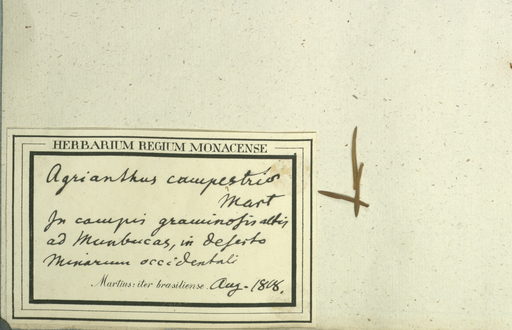 HERBARIUM REGIUM MONACENSE
Agrianthus campestris
Mart
In campis graminosis altis
ad Munbucas, in deserto
Minarum occidentali
Martius: iter brasiliense. Aug. 1818.